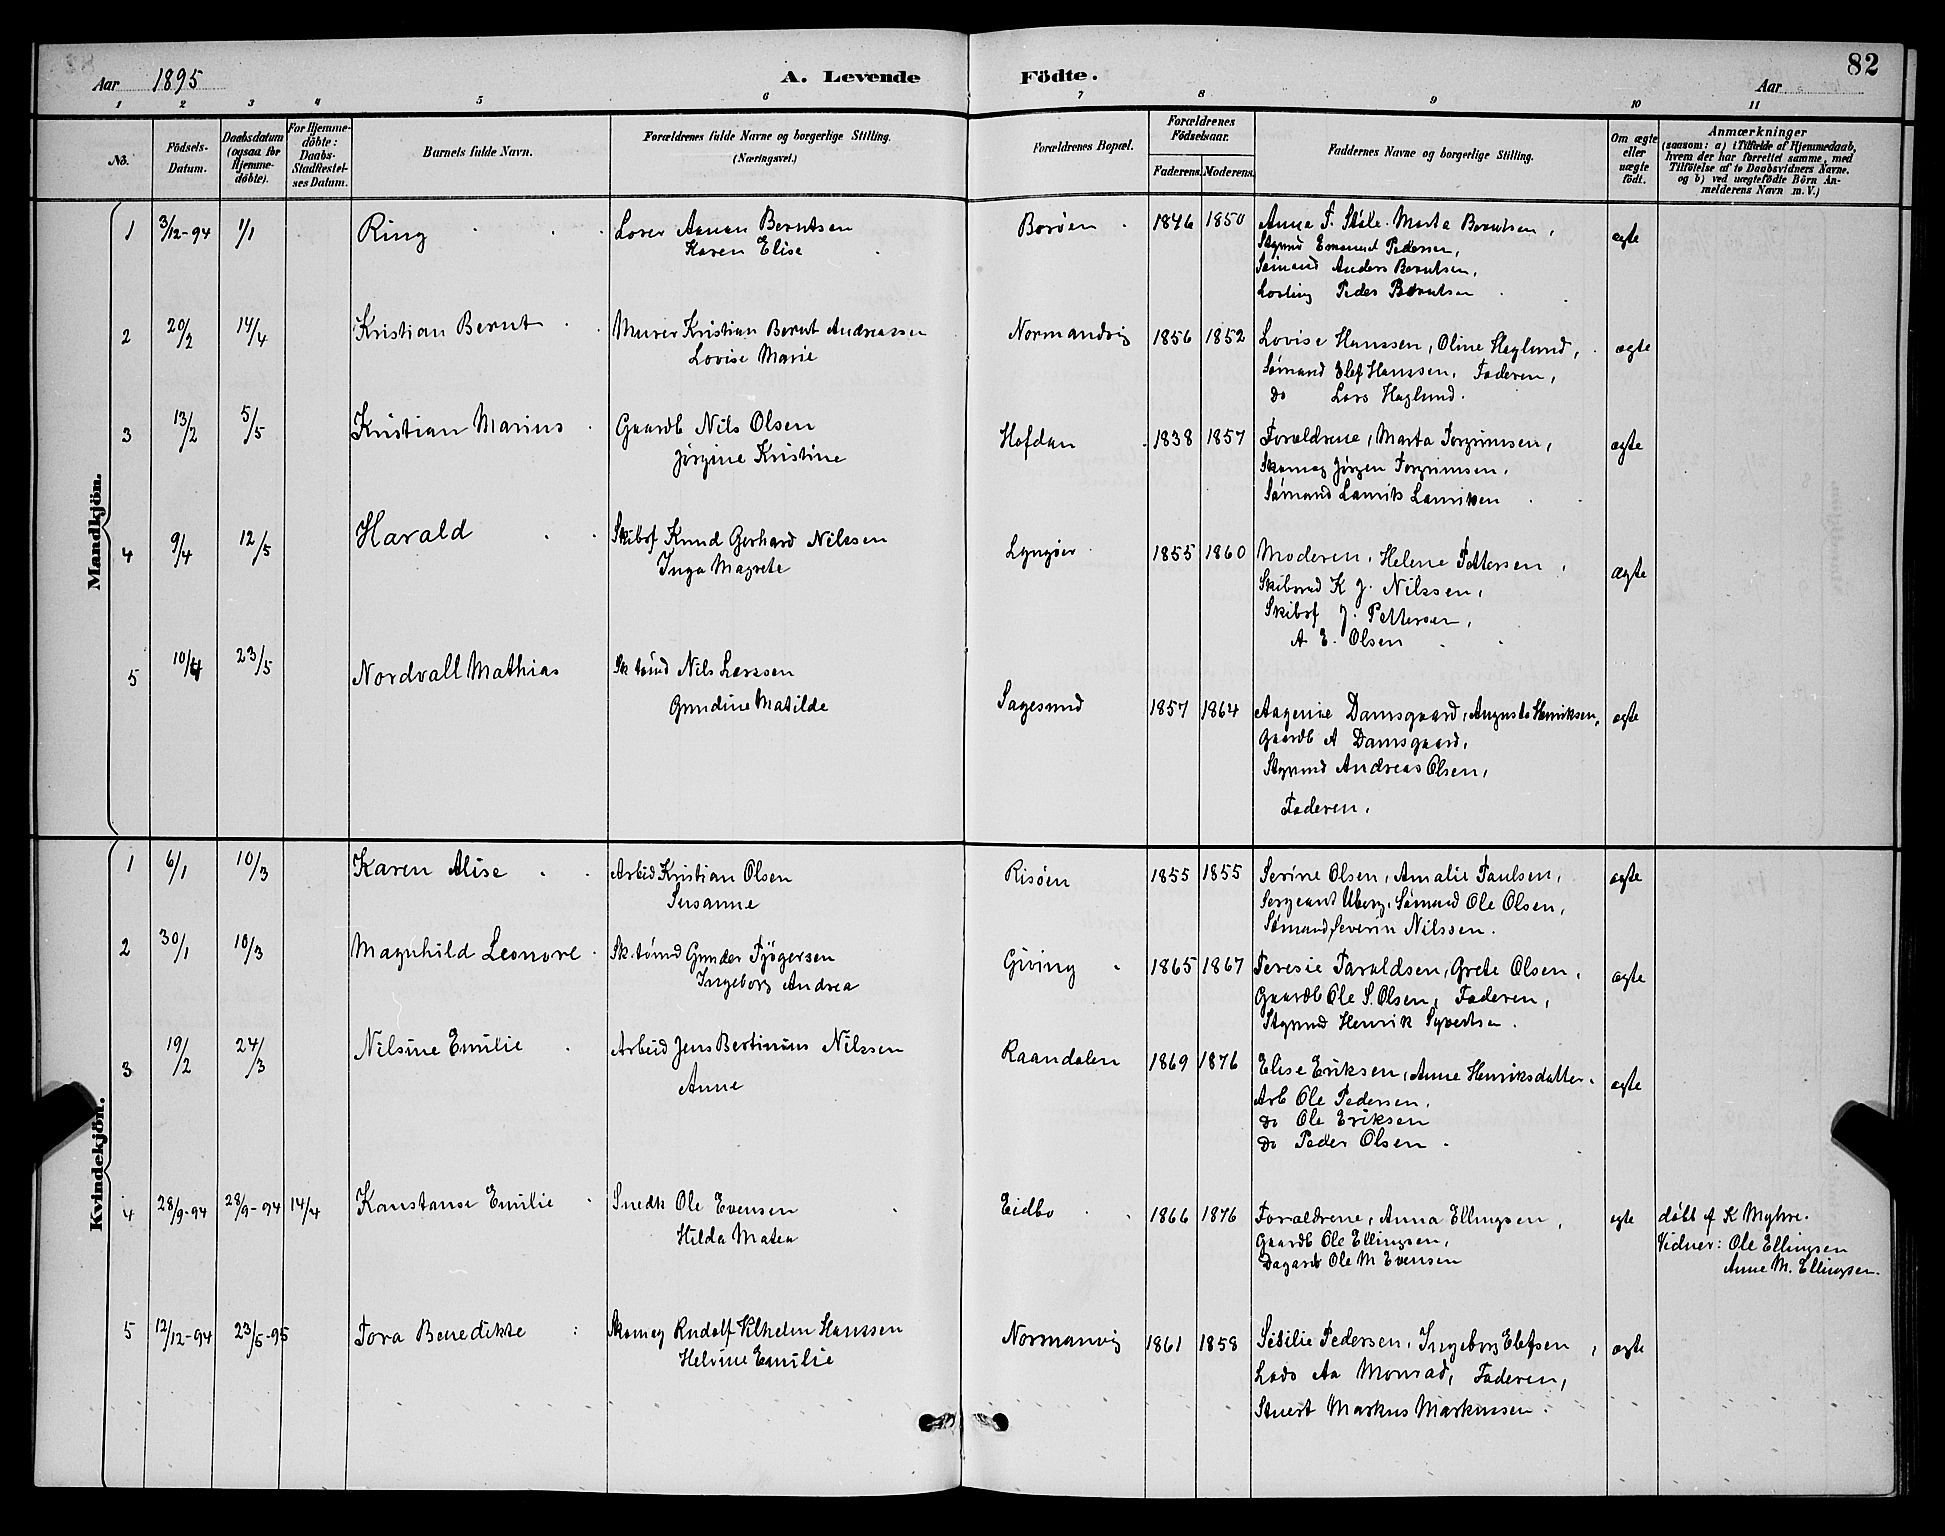 82
Aar 1895 A. Levende Födte. Aar
1 2 3 4 5 6 7 8 9 10 11
No.
Födsels-Datum.
Daabsdatum (ogsaa for Hjemmedöbte).
For Hjemmedöbte: Daabs-Stadfestelses Datum.
Barnets fulde Navn.
Forældrenes fulde Navne og borgerlige Stilling. (Næringsvei.)
Forældrenes Bopæl.
Forældrenes Födselsaar.
Faderens. Moderens.
Faddernes Navne og borgerlige Stilling.
Om ægte eller uægte födt.
Anmærkninger
(saasom: a) i Tilfælde af Hjemmedaab,
hvem der har forrettet samme, med
Tilföielse af to Daabsvidners Navne.
og b) ved uægtefödte Börn An-
melderens Navn m. V.)
Mandkjön.
1 3/12-94 1/1 Ring Aanon Berntsen Borøen 1846 1850 Marta Berntsen, ægte
Karen Elise
Emanuel Pedersen,
Sømand Anders Berntsen,
Peder Berntsen
2 20/2 14/4 Kristian Bernt Murer Kristian Bernt Andreassen Normandvig 1856 1852 Lovise Hanssen, Oline Haglund, ægte
Lovise Marie
Sømand Elef Hanssen, Faderen,
do Lars Haglund.
3 13/2 5/5 Kristian Marius Gaardb Nils Olsen Hofdan 1838 1857 Forældrene, Marta Torgrimsen, ægte
Jørgine Kristine
Skomag Jørgen Torgrimsen,
Sømand Lamriksen
4 9/4 12/5 Harald Skibsf Knud Gerhard Nilssen Lyngøer 1855 1860 Moderen, Helene Pettersen, ægte
Inga Magrete
K J. Nilssen,
Skibsf J. Pettersen,
A E. Olsen
5 10/4 23/5 Nordvall Mathias Sk tømd Nils Larssen Sagesund 1857 1864 Aagenie Damsgaard, Augusta Henriksen, ægte
Gundine Matilde
Gaardb A Damsgaard,
Stgmnd Andreas Olsen,
Faderen.
Kvindekjön.
1 6/1 10/3 Karen Alise Arbeid Kristian Olsen Risøen 1855 1855 Serine Olsen, Amalie Paulsen, ægte
Susanne
Sergeant Uberg, Sømand Ole Olsen,
Sømand Severin Nilssen.
2 30/1 10/3 Magnhild Leonore Sk.tømd Gunder Tjøgersen Giving 1865 1867 Teresie Taraldsen, Grete Olsen, ægte
Ingeborg Andrea
Gaardb Ole S. Olsen, Faderen,
Stgmnd Henrik Syvertsen.
3 19/2 24/3 Nilsine Emilie Arbeid Jens Bertinius Nilssen Raandalen 1869 1876 Elise Eriksen, Anne Henriksdatter. ægte
Anne
Arb Ole Pedersen,
do Ole Eriksen
do Peder Olsen.
4 28/9-94 28/9-94 14/4 Konstanse Emilie Snedk Ole Evensen Eidbo 1866 1876 Forældrene, Anna Ellingsen, egte døbt af K Myhre.
Hilda Matea
Gaardb Ole Ellingsen, Vidner: Ole Ellingsen
Dagarb Ole M Evensen Anne M. Ellingsen.
5 12/12-94 23/5-95 Tora Benedikte Skomag Rudolf Vilhelm Hanssen Normanvig 1861 1858 Sesilie Pedersen, Ingeborg Elefsen, ægte
Helvine Emilie
Lods Aa Monrad, Faderen,
Stuert Markus Markussen.